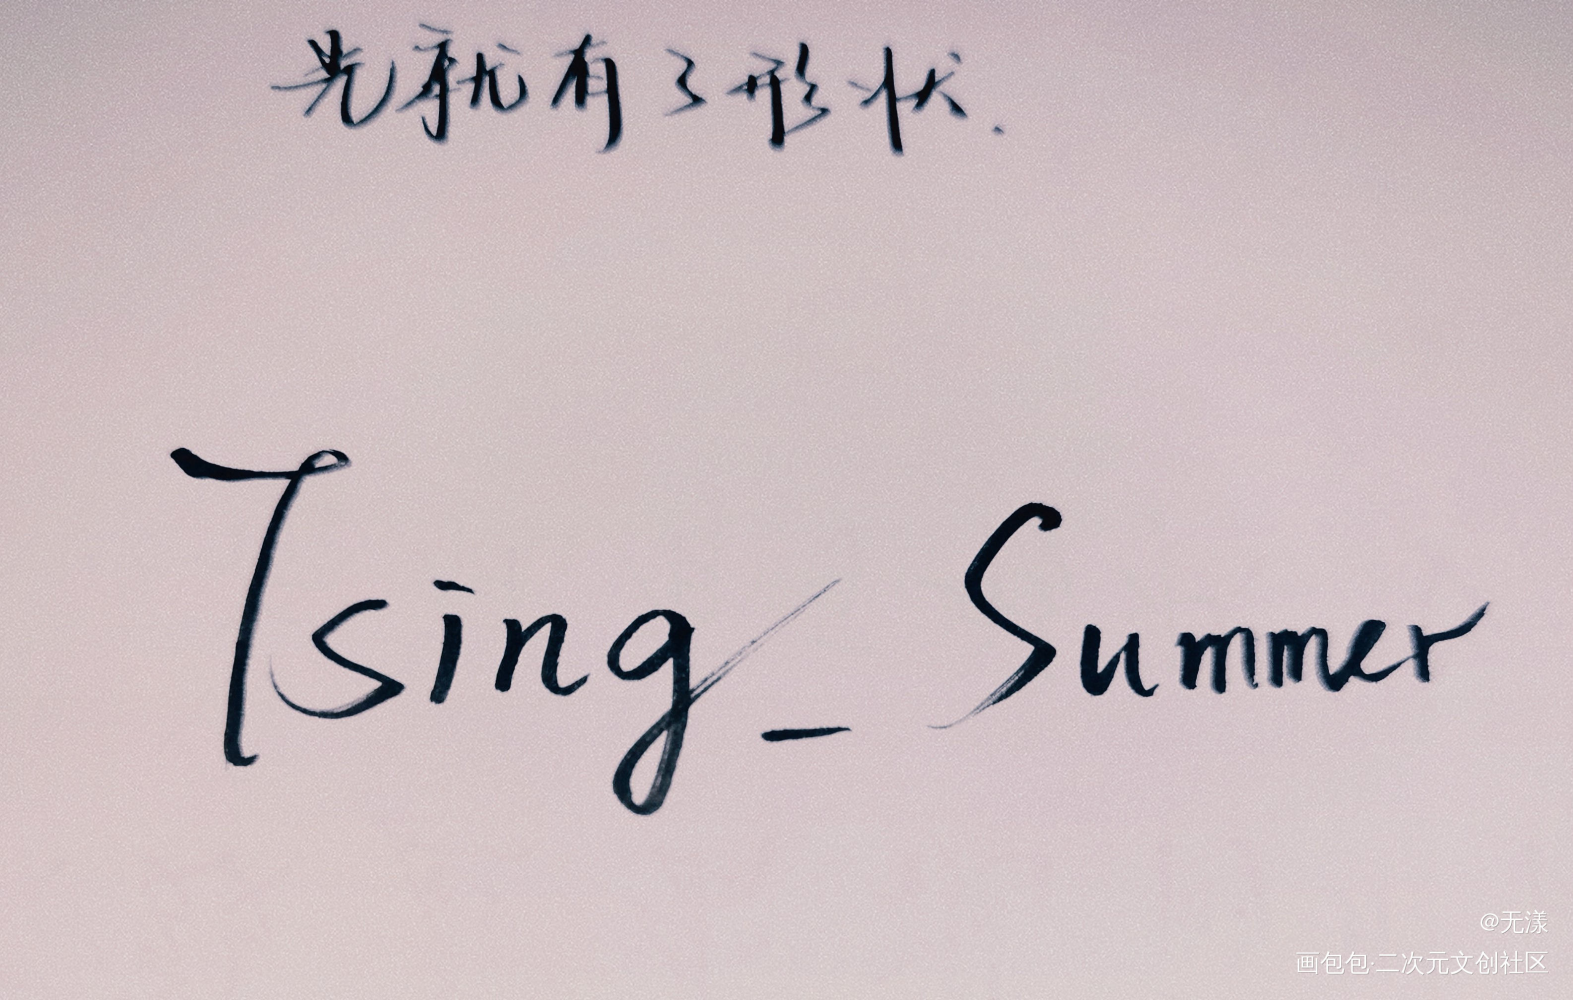 光就有了形状.
Tsing_Summer
@无漾
画包包·二次元文创社区